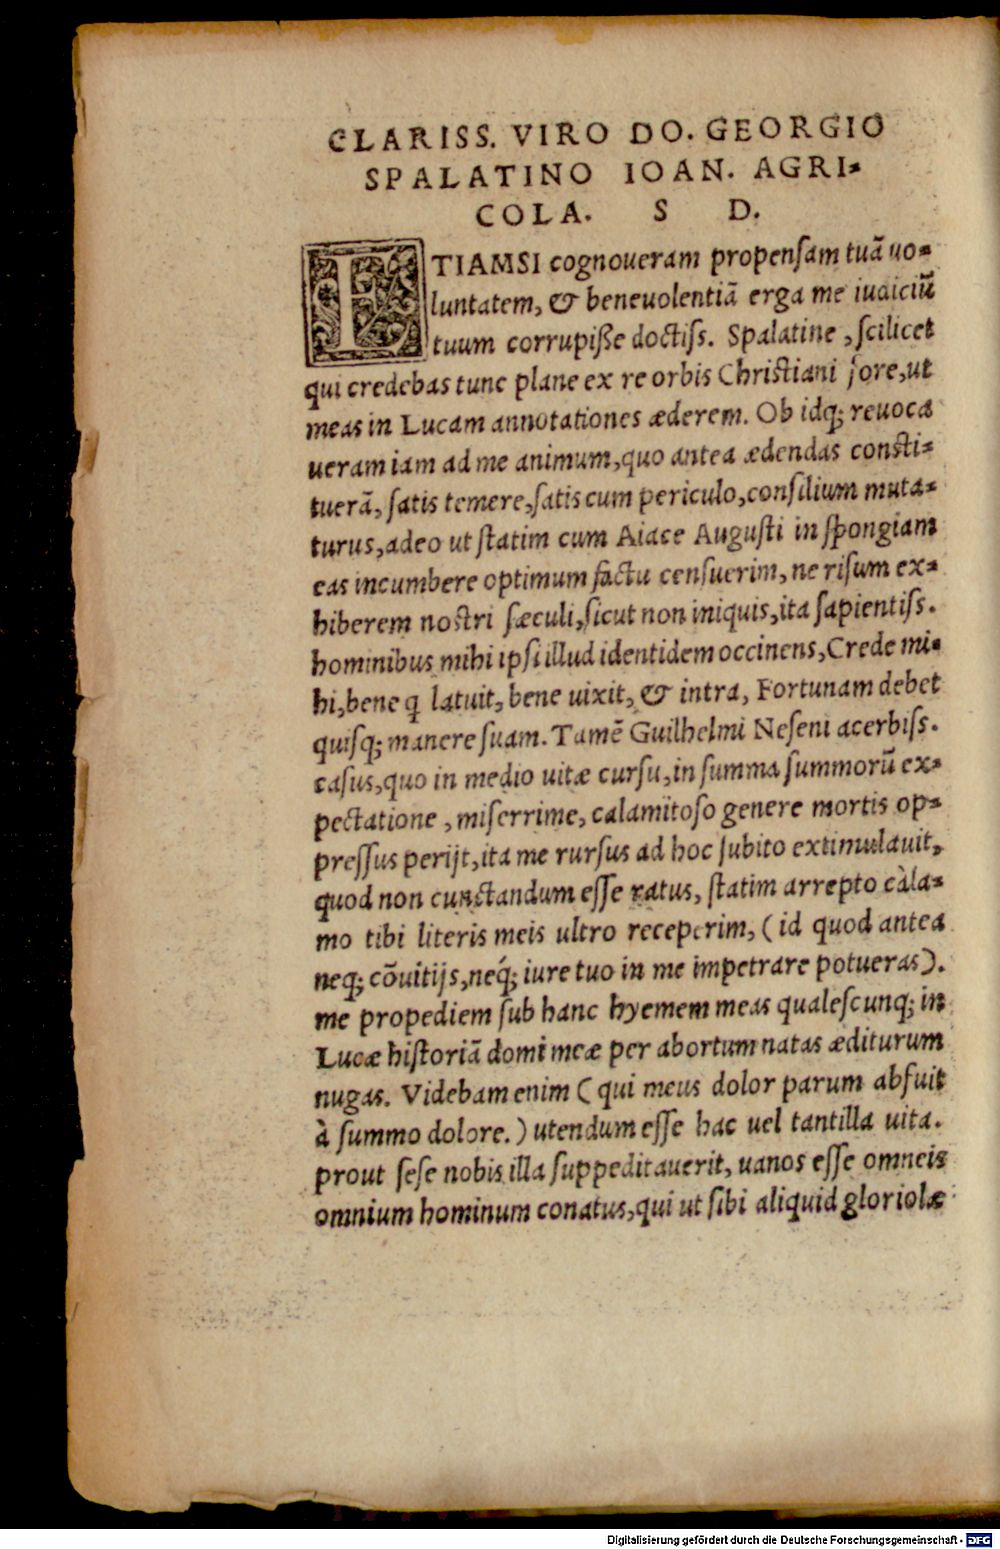 CLARISS. VIRO DO. GEORGIO
SPALATINO IOAN. AGRI-
COLA. S D.
ETIAMSI cognoueram propensam tuā uo-
luntatem, & beneuolentiā erga me iudiciū
tuum corrupiße doctiss. Spalatine, scilicet
qui credebas tunc plane ex re orbis Christiani fore, ut
meas in Lucam annotationes æderem. Ob idq; reuoca
ueram iam ad me animum, quo antea ædendas consti-
tuerā, satis temere, satis cum periculo, consilium muta-
turus, adeo ut statim cum Aiace Augusti in spongiam
eas incumbere optimum factu censuerim, ne risum ex-
hiberem nostri sæculi, sicut non iniquis, ita sapientiss.
hominibus mihi ipsi illud identidem occinens, Crede mi-
hi, bene q latuit, bene uixit, & intra, Fortunam debet
quisq; manere suam. Tamē Guilhelmi Neseni acerbiss.
casus, quo in medio uitæ cursu, in summa summorū ex-
pectatione, miserrime, calamitoso genere mortis op-
pressus perijt, ita me rursus ad hoc subito extimulauit,
quod non cunctandum esse ratus, statim arrepto càla-
mo tibi literis meis ultro receperim, (id quod antea
neq; cōuitijs, neq́; iure tuo in me impetrare potueras).
me propediem sub hanc hyemem meas qualescunq; in
Lucæ historiā domi meæ per abortum natas æditurum
nugas. Videbam enim (qui meus dolor parum abfuit
à summo dolore.) utendum esse hac uel tantilla uita.
prout sese nobis illa suppeditauerit, uanos esse omneis
omnium hominum conatus, qui ut sibi aliquid gloriolæ
Digitalisierung gefördert durch die Deutsche Forschungsgemeinschaft - DFG